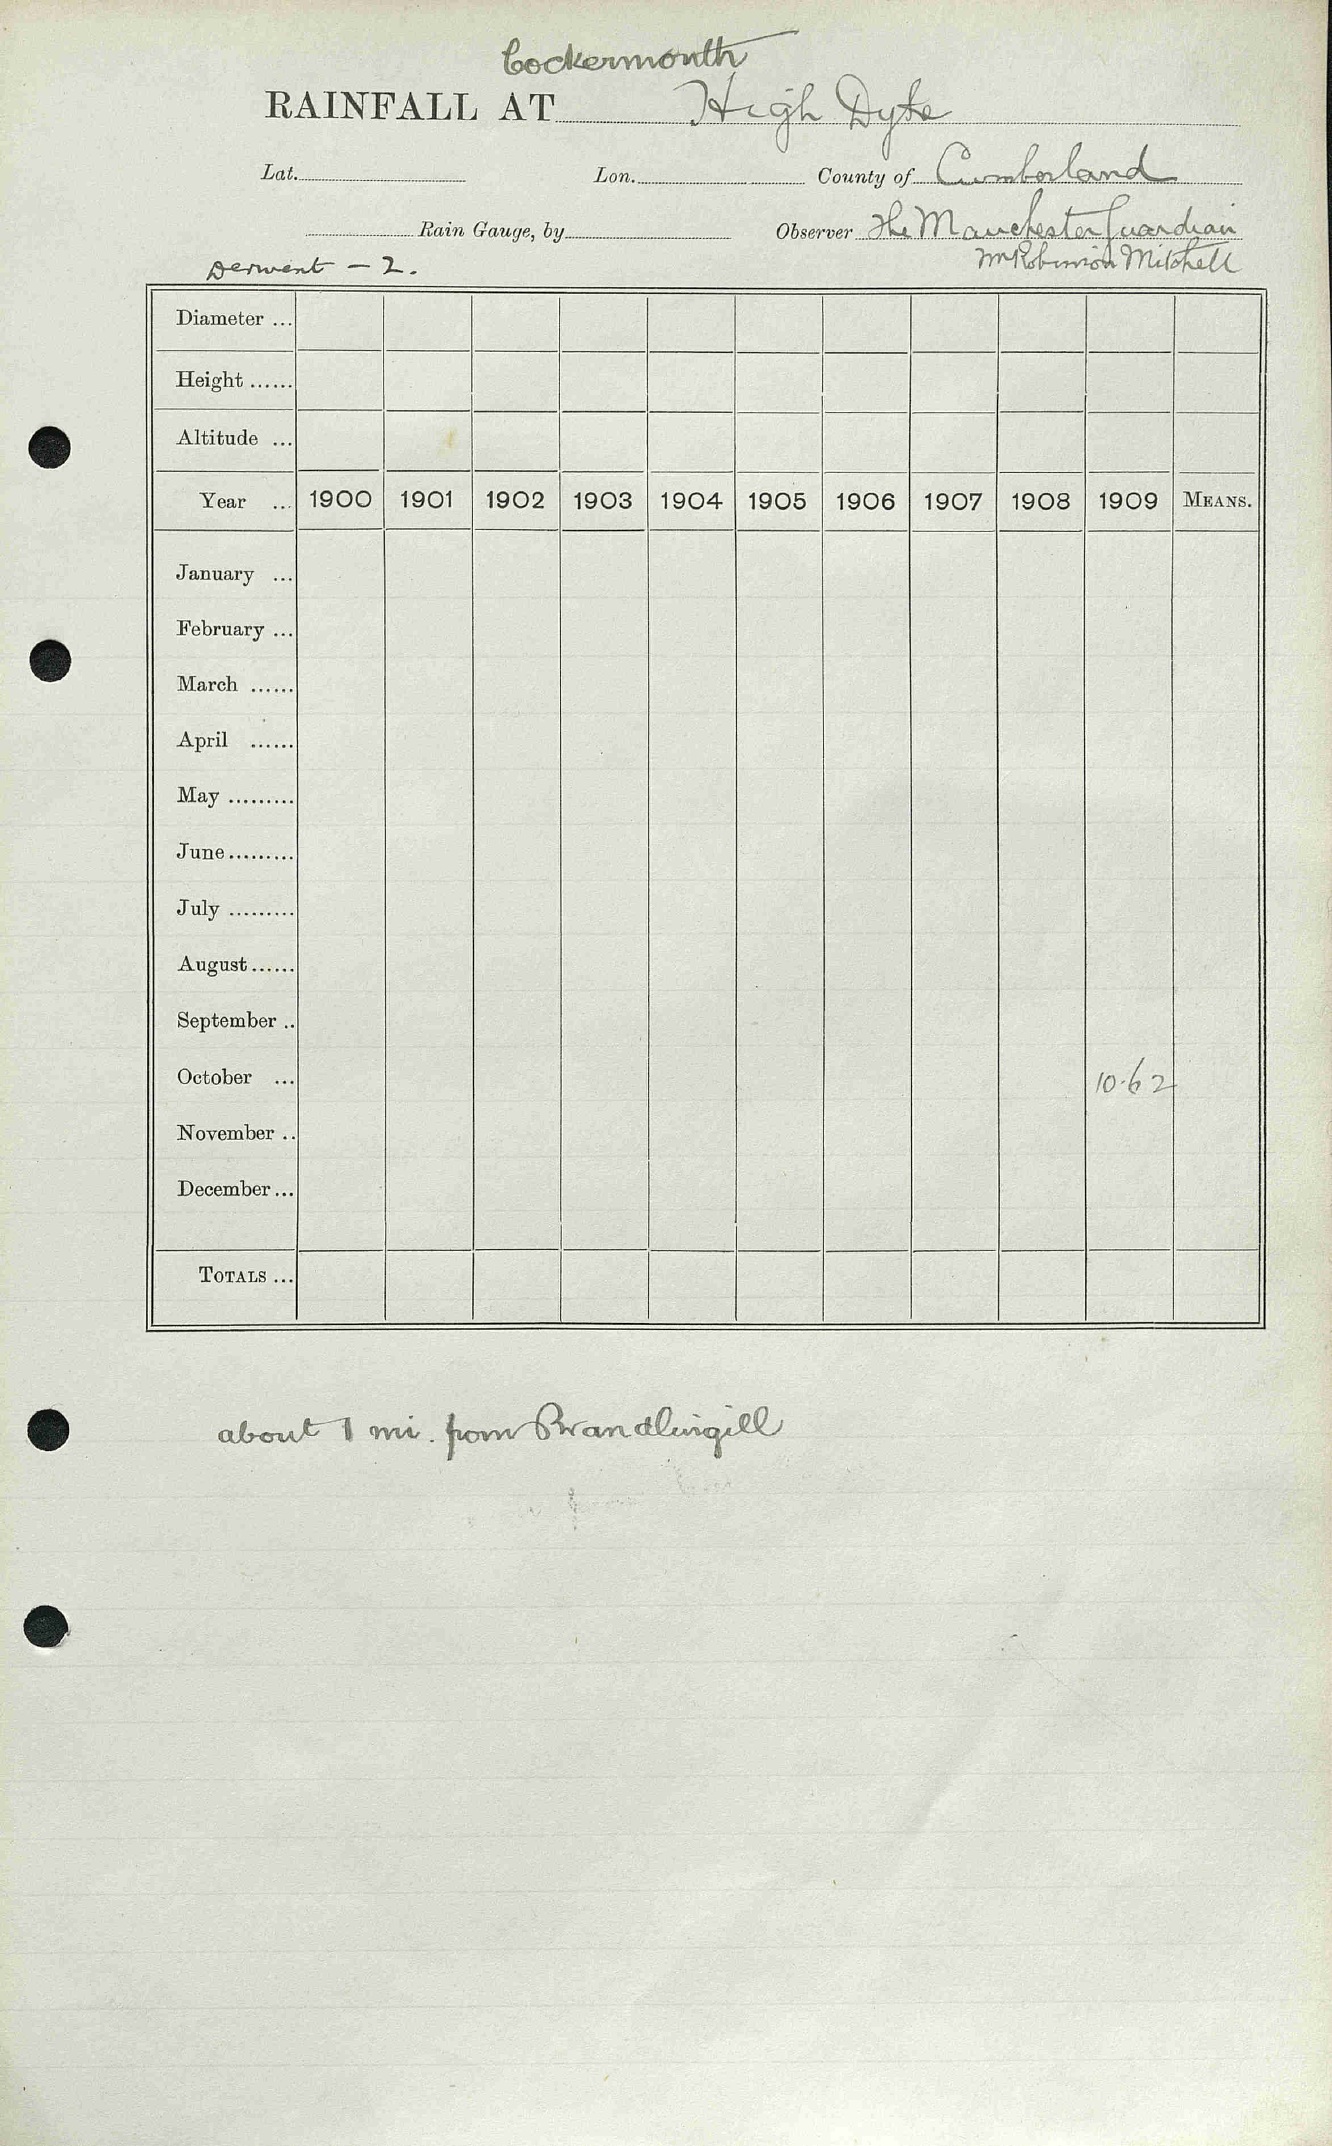 Cockermouth
RAINFALL AT High Dyke
Lat. Lon. County of Cumberland
Rain Gauge, by Observer The Manchester Guardian
Derwent - 2. Mr Robinson Mitchell
Diameter ...
Height ......
Altitude ...
Year ... 1900 1901 1902 1903 1904 1905 1906 1907 1908 1909 MEANS.
January ...
February ...
March ......
April ......
May .........
June .........
July .........
August ......
September ..
October ... 10.62
November ..
December ...
TOTALS ...
about 1 mi. from Brandlingill